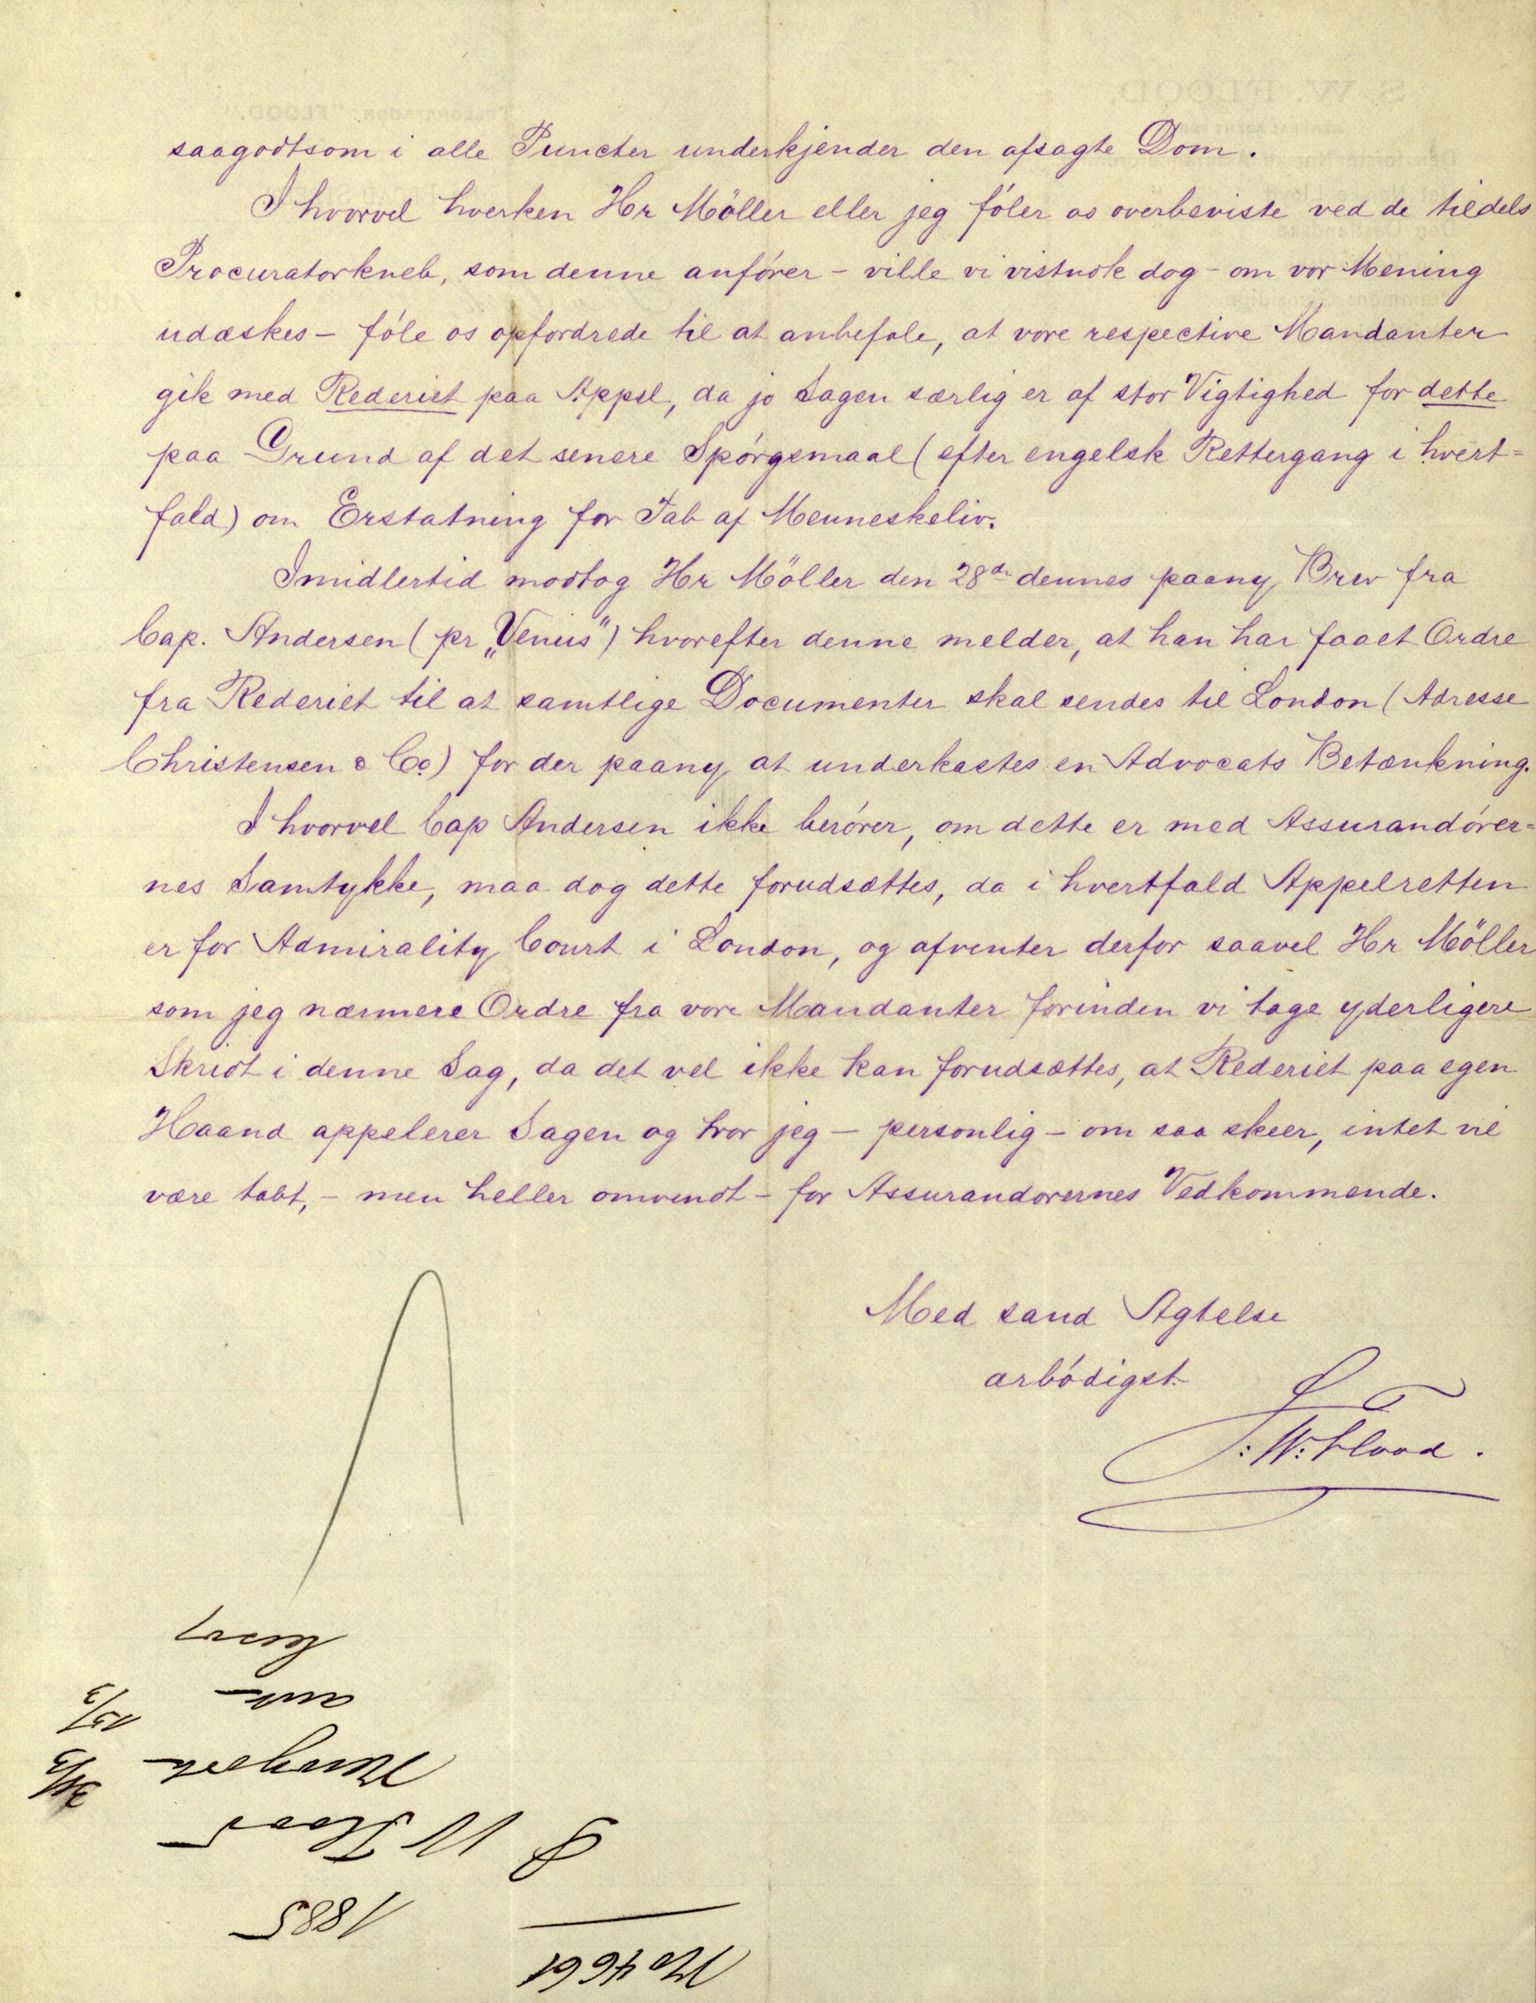 saagodtsom i alle Puncter underkjender den afsagte Dom.
Ihvorvel hverken Hr Möller eller jeg föler os overbeviste ved de tildels
Procuratorkneb, som denne anförer – ville vi vistnok dog – om vor Mening
udæskes – föle os opfordrede til at anbefale, at vore respective Mandanter
gik med Rederiet paa Appel, da jo Sagen særlig er af stor Vigtighed for dette
paa Grund af det senere Spörgsmaal (efter engelsk Rettergang i hvert=
fald) om Erstatning for Tab af Menneskeliv.
Imidlertid modtog Hr Möller den 28de dennes paany Brev fra
Cap. Andersen (pr „Venus“) hvorefter denne melder, at han har faaet Ordre
fra Rederiet til at samtlige Documenter skal sendes til London (Adresse
Christensen & Co) for der paany at underkastes en Advocats Betænkning.
Ihvorvel Cap Andersen ikke berörer, om dette er med Assurandörer=
nes Samtykke, maa dog dette forudsættes, da i hvertfald Appelretten
er for Admirality Court i London, og afventer derfor saavel Hr Möller
som jeg nærmere Ordre fra vore Mandanter forinden vi tage yderligere
Skridt i denne Sag, da det vel ikke kan forudsættes, at Rederiet paa egen
Haand appelerer Sagen og tror jeg – personlig – om saa skeer, intet vil
være tabt, – men heller omvendt – for Assurandorernes Vedkommende.
Med sand Agtelse
ærbödigst
S. W. Flood.
No 4661
1885
S W Flood
31/3
15/3